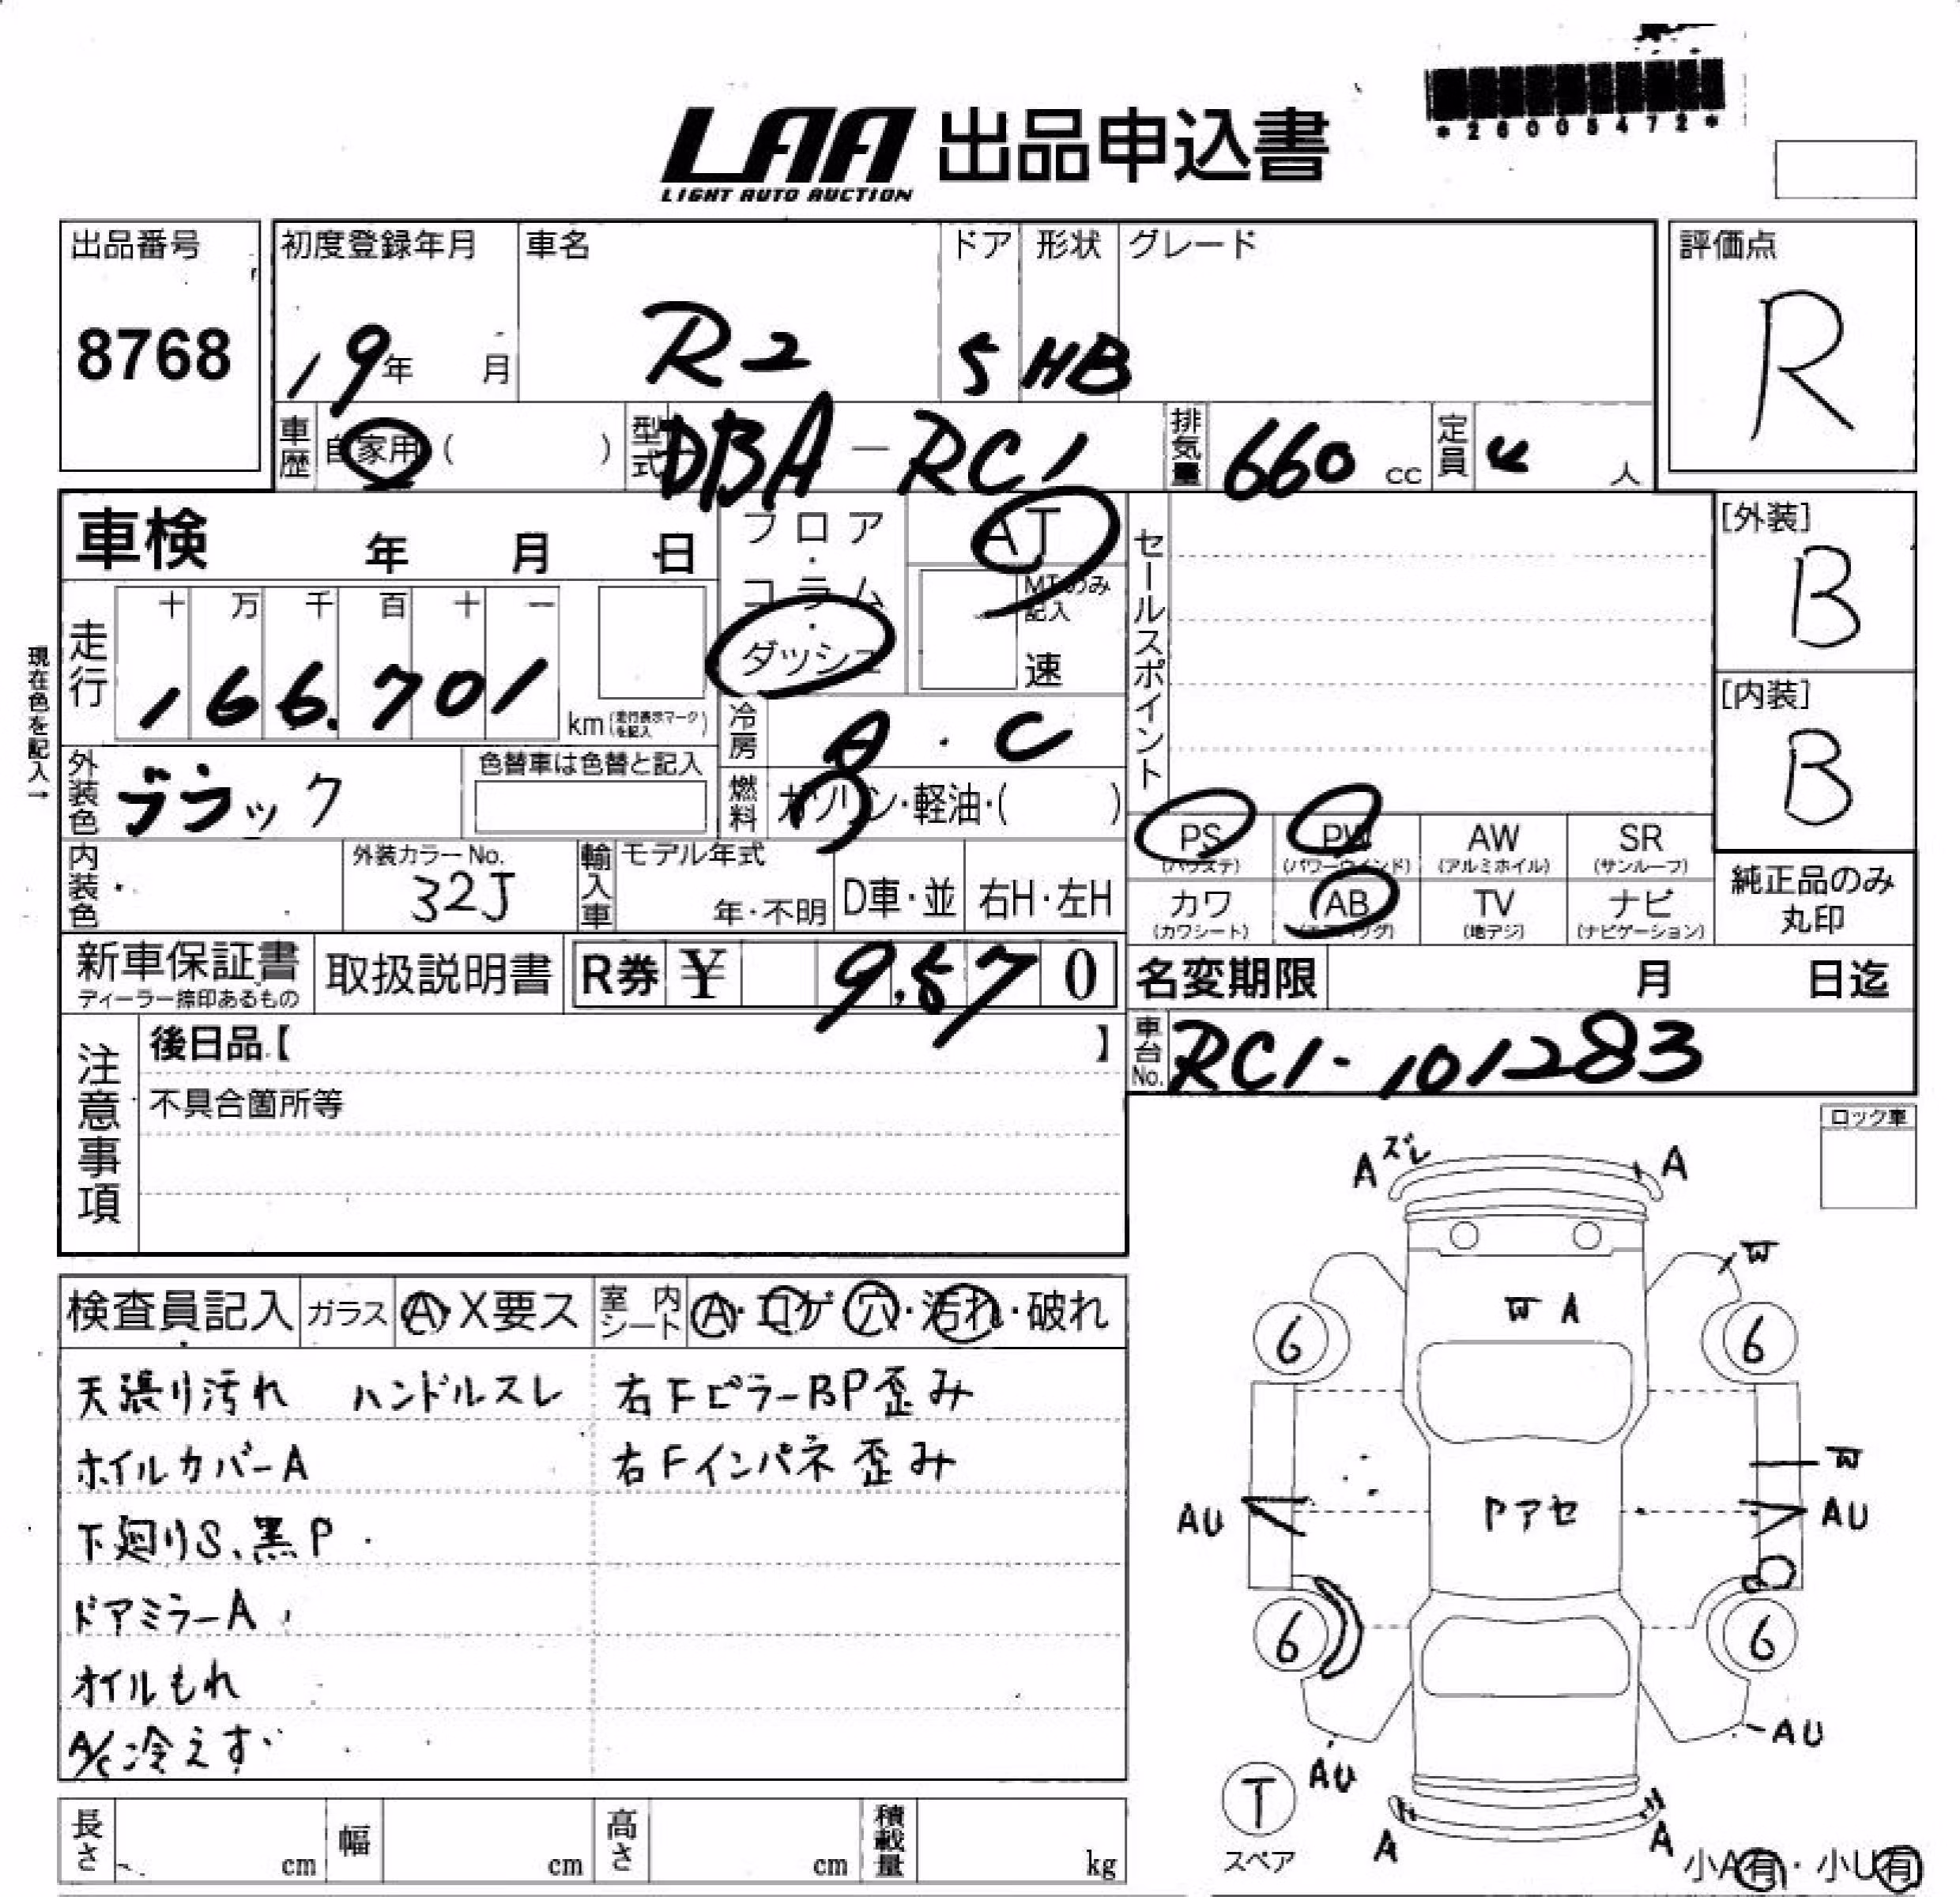 *26005472*
LAA 出品申込書
LIGHT AUTO AUCTION
出品番号
8768
初度登録年月
19年 月
車名
R2
ドア
5
形状
HB
グレード
評価点
R
車歴 自家用 ( )
型式 DBA-RC1
排気量 660 cc
定員 4 人
車検 年 月 日
フロア・コラム・ダッシュ
AT
MTのみ記入
速
セールスポイント
[外装]
B
[内装]
B
現在色を記入→
走行
十 万 千 百 十 一
166.701
km (走行表示マークを記入)
冷房 A・C
外装色 ブラック
色替車は色替と記入
燃料 ガソリン・軽油・( )
PS (パワステ) PW (パワーウインド) AW (アルミホイル) SR (サンルーフ)
カワ (カワシート) AB (エアバッグ) TV (地デジ) ナビ (ナビゲーション)
純正品のみ丸印
内装色
外装カラーNo.
32J
輸入車
モデル年式
年・不明
D車・並
右H・左H
新車保証書
ディーラー捺印あるもの
取扱説明書
R券 ¥ 9,570
名変期限 月 日迄
車台No. RC1-101283
注意事項
後日品【 】
不具合箇所等
ロック車
検査員記入 ガラス A・X要ス 室内シート A・コゲ・穴・汚れ・破れ
天張り汚れ ハンドルスレ
右FピラーBP歪み
ホイルカバーA
右Fインパネ歪み
下廻りS、黒P
ドアミラーA
オイルもれ
A/C冷えず
A ズレ A
W
W A
6 6
W
AU Pアセ AU
6 6
AU AU
T
スペア
A A
小A有・小U有
長さ cm 幅 cm 高さ cm 積載量 kg